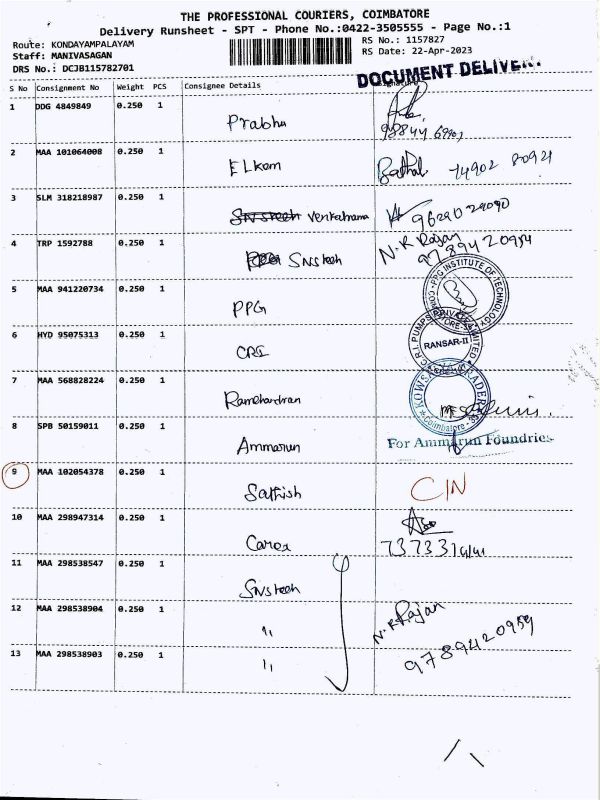 THE PROFESSIONAL COURIERS, COIMBATORE
Delivery Runsheet - SPT - Phone No.:0422-3505555 - Page No.:1
Route: KONDAYAMPALAYAM
RS No.: 1157827
Staff: MANIVASAGAN
RS Date: 22-Apr-2023
DRS No.: DCJB115782701
DOCUMENT DELIVERY
S No Consignment No Weight PCS Consignee Details
1 DDG 4849849 0.250 1 Prabhu
2 MAA 101064008 0.250 1 ELkem 74902 80921
3 SLM 318218987 0.250 1 Snsteech Venkatrama 9629029090
4 TRP 1592788 0.250 1 Snsteeh N.R Rajan 9789420959
5 MAA 941220734 0.250 1 PPG
PPG INSTITUTE OF TECHNOLOGY
6 HYD 95075313 0.250 1 CRI
C.R.I. PUMPS PRIVATE LIMITED
RANSAR-II
7 MAA 568828224 0.250 1 Ramchandran
Coimbatore - 35
8 SPB 50159011 0.250 1 Ammarun For Ammarun Foundries
9 MAA 102054378 0.250 1 Sathish CIN
10 MAA 298947314 0.250 1 Carex
11 MAA 298538547 0.250 1 Snsteeh
12 MAA 298538904 0.250 1 〃 N.R Rajan
13 MAA 298538903 0.250 1 〃 9789420959